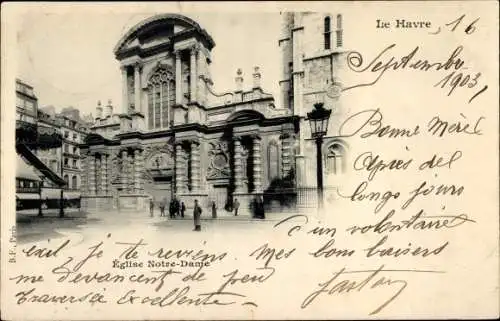 Le Havre, 16
Septembre
1903
Bonne Mère
Après de
longs jours
d'un volontaire
exil je te reviens mes bons baisers
me devançant de peu
Traversée excellente
Église Notre-Dame
B. F., Paris